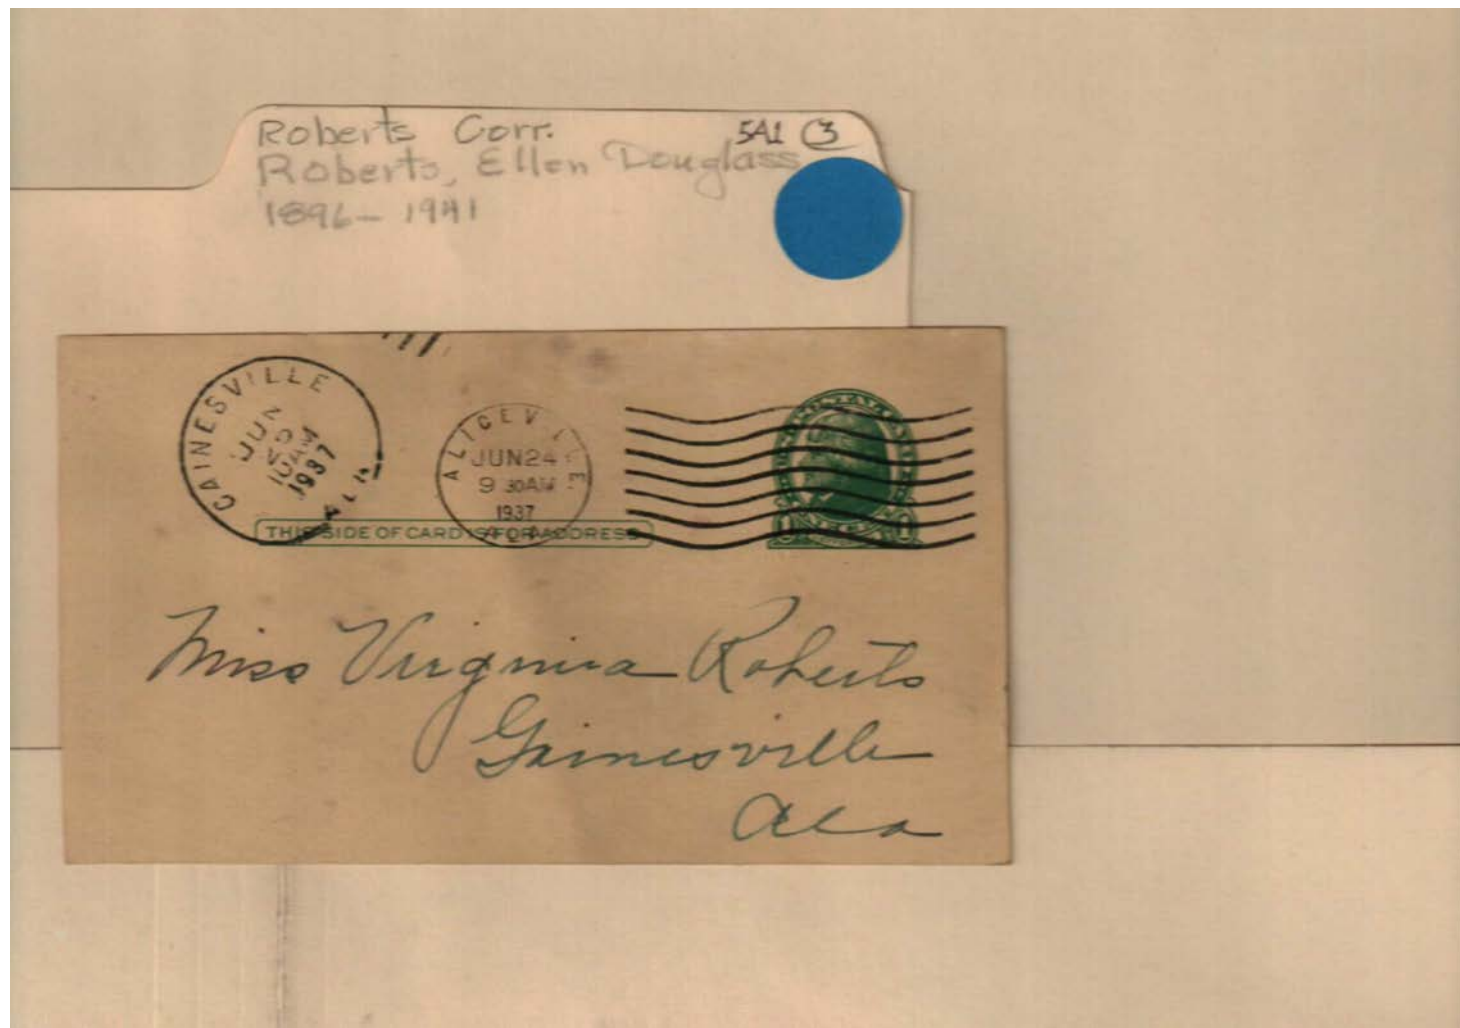 Roberts Corr. 5A1 3
Roberts, Ellen Douglass
1896-1941
GAINESVILLE
JUN
25
10AM
1937
ALA
ALICEVILLE
JUN 24
9 30AM
1937
ALA
THIS SIDE OF CARD IS FOR ADDRESS
Miss Virginia Roberts
Gainesville
Ala